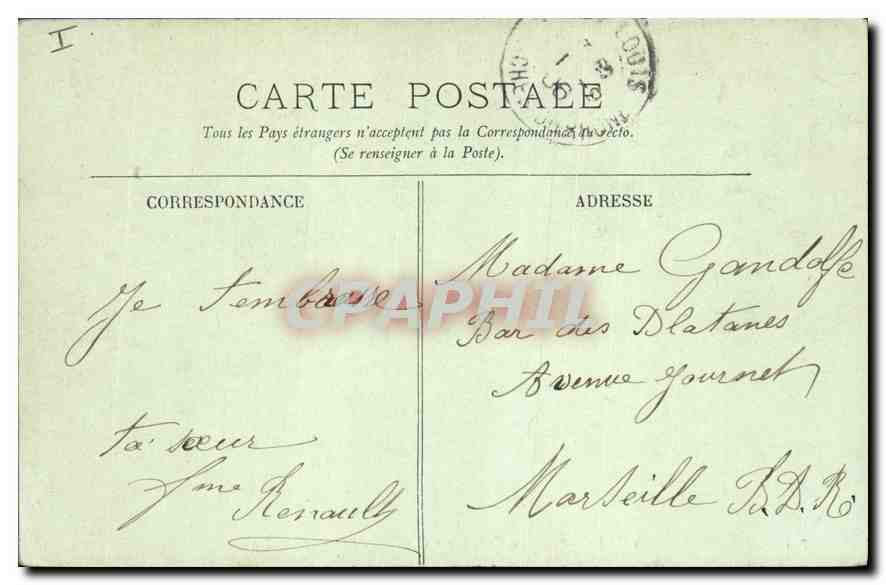 I
CARTE POSTALE
Tous les Pays étrangers n'acceptent pas la Correspondance au recto.
(Se renseigner à la Poste).
CORRESPONDANCE
ADRESSE
Je t'embrasse
ta sœur
Renault
Madame Gandolfe
Bar des Platanes
Avenue Journet
Marseille B.D.R.
CPAPHIL